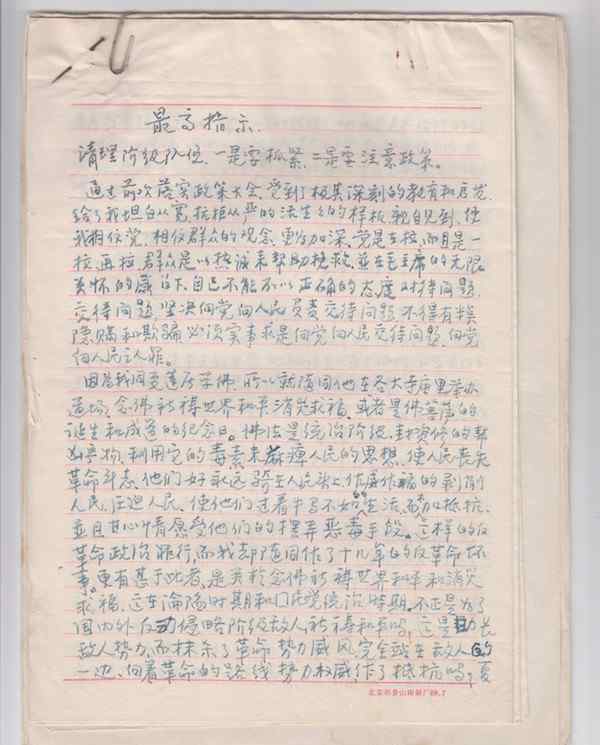 最高指示.
清理阶级队伍，一是要抓紧，二是要注意政策。
通过前次落实政策大会，受到了极其深刻的教育和启发，
给了我坦白从宽，抗拒从严的活生生的样板，亲自见到，使
我相信党，相信群众的观念，更为加深，党是在拉，而且是一
拉再拉，群众是以热诚来帮助挽救，並在毛主席的无限
关怀的 下，自己不能不以正确的态度对待问题，
交待问题，坚决向党向人民负责交待问题，不得有半
隐瞒和欺骗，必须实事求是向党向人民交待问题，向党
向人民认罪。
因为我同 学佛，所以就随同他在各大寺庙里举办
道场，念佛祈祷世界和平消灾求福，或者是佛菩萨的
诞生和成道的纪念日。佛法是统治阶级，封资修的帮
凶产物，利用它的毒素来麻痺人民的思想，使人民丧失
革命斗志，他们好永远骑在人民头上作威作福的剥削
人民，压迫人民，使他们过着牛马不如的生活，而不加抵抗，
並且甘心情愿受他们的摆弄恶毒手段。这样的反
革命政治罪行，而我却随同作了十几年的反革命坏
事。更有甚于此者，是关於念佛祈祷世界和平和消灾
求福，这在沦陷时期和门氏党统治时期，不正是为了
国内外反动侵略阶级敌人祈祷和平吗，这是助长
敌人势力，而抹杀了革命势力威风完全站在敌人的
一边，向着革命的路线势力权威作了抵抗吗，
北京市香山印刷厂69.7